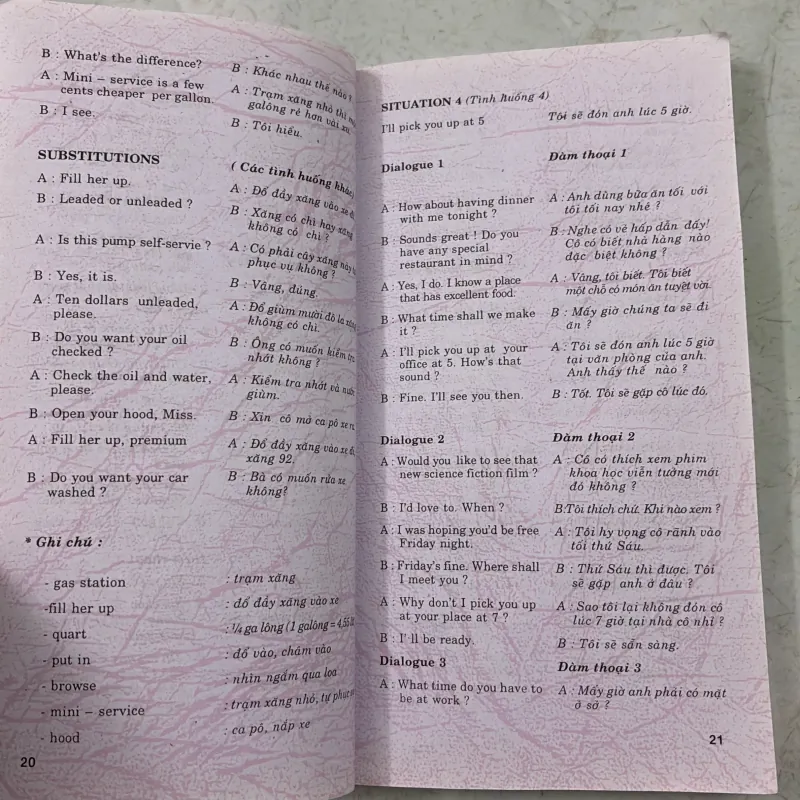 B : What's the difference?
B : Khác nhau thế nào ?
A : Mini – service is a few
cents cheaper per gallon.
A : Trạm xăng nhỏ thì
galông rẻ hơn vài xu.
B : I see.
B : Tôi hiểu.
SUBSTITUTIONS
( Các tình huống khác
A : Fill her up.
A : Đổ đầy xăng vào xe
B : Leaded or unleaded ?
B : Xăng có chì hay xăng
không có chì ?
A : Is this pump self-servie ?
A : Có phải cây xăng này
phục vụ không ?
B : Yes, it is.
B : Vâng, đúng.
A : Ten dollars unleaded,
please.
A : Đổ giùm mười đô la xăng
không có chì.
B : Do you want your oil
checked ?
B : Ông có muốn kiểm tra
nhớt không ?
A : Check the oil and water,
please.
A : Kiểm tra nhớt và nước
giùm.
B : Open your hood, Miss.
B : Xin cô mở ca pô xe
A : Fill her up, premium
A : Đổ đầy xăng vào xe
xăng 92.
B : Do you want your car
washed ?
B : Bà có muốn rửa xe
không?
* Ghi chú :
- gas station
: trạm xăng
-fill her up
: đổ đầy xăng vào xe
- quart
: ¼ ga lông (1 galông = 4,55
- put in
: đổ vào, châm vào
- browse
: nhìn ngắm qua loa
- mini – service
: trạm xăng nhỏ, tự phục
- hood
: ca pô, nắp xe
20
SITUATION 4 (Tình huống 4)
I'll pick you up at 5
Tôi sẽ đón anh lúc 5 giờ.
Dialogue 1
Đàm thoại 1
A : How about having dinner
with me tonight ?
A : Anh dùng bữa ăn tối với
tôi tối nay nhé ?
B : Sounds great ! Do you
have any special
restaurant in mind ?
B : Nghe có vẻ hấp dẫn đấy!
Cô có biết nhà hàng nào
đặc biệt không ?
A : Yes, I do. I know a place
that has excellent food.
A : Vâng, tôi biết. Tôi biết
một chỗ có món ăn tuyệt vời.
B : What time shall we make
it ?
B : Mấy giờ chúng ta sẽ đi
ăn ?
A : I'll pick you up at your
office at 5. How's that
sound ?
A : Tôi sẽ đón anh lúc 5 giờ
tại văn phòng của anh.
Anh thấy thế nào ?
B : Fine. I'll see you then.
B : Tốt. Tôi sẽ gặp cô lúc đó.
Dialogue 2
Đàm thoại 2
A : Would you like to see that
new science fiction film ?
A : Cô có thích xem phim
khoa học viễn tưởng mới
đó không ?
B : I'd love to. When ?
B:Tôi thích chứ. Khi nào xem ?
A : I was hoping you'd be free
Friday night.
A : Tôi hy vọng cô rãnh vào
tối thứ Sáu.
B : Friday's fine. Where shall
I meet you ?
B : Thứ Sáu thì được. Tôi
sẽ gặp anh ở đâu ?
A : Why don't I pick you up
at your place at 7 ?
A : Sao tôi lại không đón cô
lúc 7 giờ tại nhà cô nhỉ ?
B : I' ll be ready.
B : Tôi sẽ sẵn sàng.
Dialogue 3
Đàm thoại 3
A : What time do you have to
be at work ?
A : Mấy giờ anh phải có mặt
ở sở ?
21